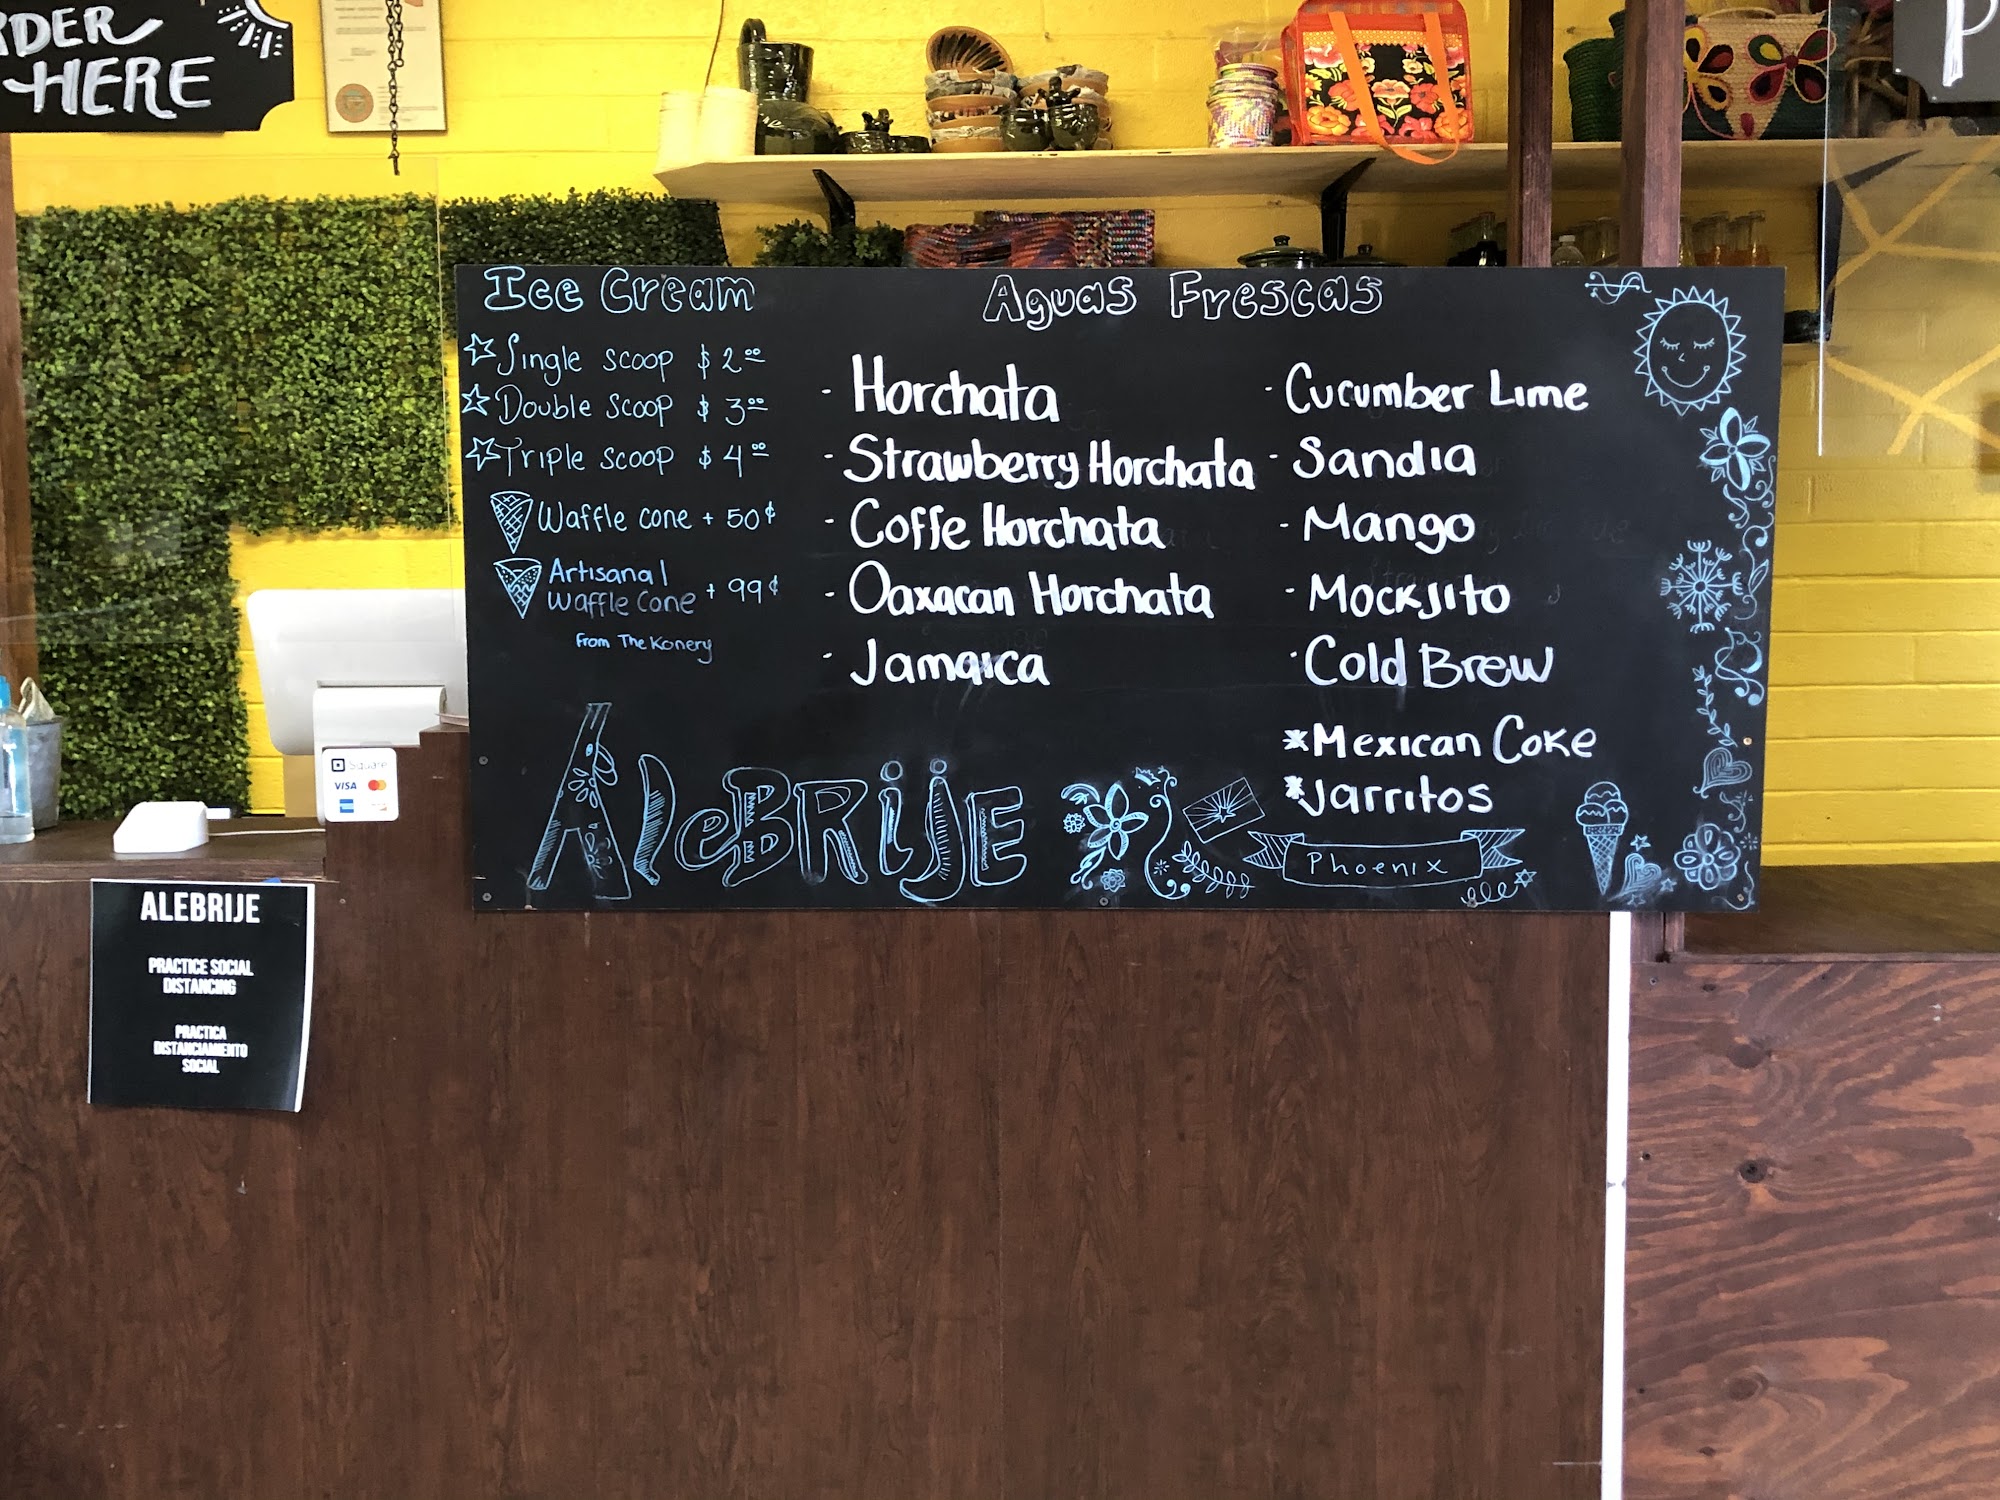 RDER
HERE
Ice Cream
Single scoop $2.00
Double scoop $3.00
Triple scoop $4.00
Waffle cone + 50¢
Artisanal
Waffle Cone + 99¢
from The Konery
Aguas Frescas
- Horchata
- Strawberry Horchata
- Coffe Horchata
- Oaxacan Horchata
- Jamaica
- Cucumber Lime
- Sandia
- Mango
- Mockjito
- Cold Brew
*Mexican Coke
*Jarritos
AleBRiJE
Phoenix
Square
VISA
ALEBRIJE
PRACTICE SOCIAL
DISTANCING
PRACTICA
DISTANCIAMIENTO
SOCIAL
P